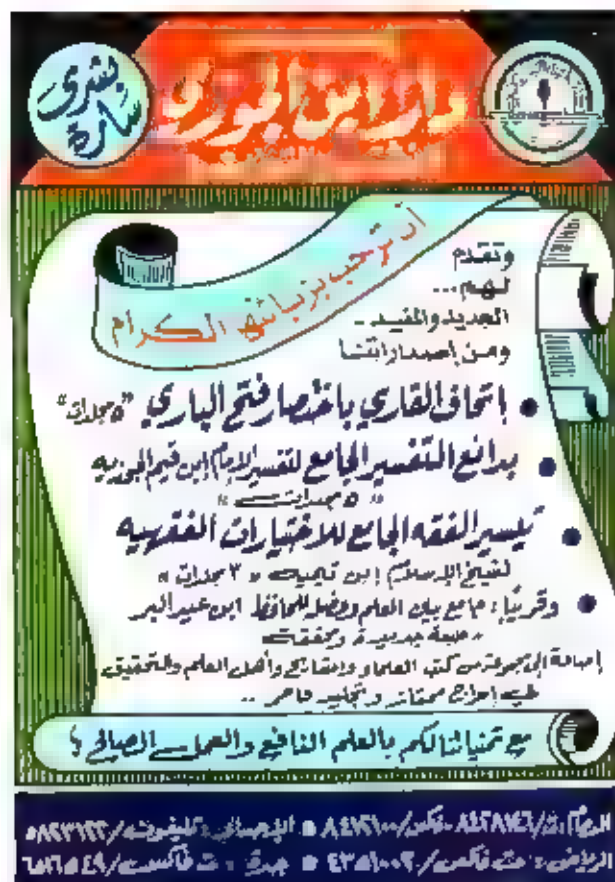 بشرى
سارة
دار ابن الجوزي
أن ترحب بزبائنها الكرام
وتقدم
لهم...
الجديد والمفيد..
ومن إصداراتنا
• إتحاف القاري باختصار فتح الباري "٥ مجلدات"
• بدائع التفسير الجامع لتفسير الإمام ابن قيم الجوزية
« ٥ مجلدات »
• تيسير الفقه الجامع للاختيارات الفقهية
لشيخ الإسلام ابن تيمية « ٣ مجلدات »
• وقريبًا: جامع بيان العلم وفضله للحافظ ابن عبد البر
طبعة جديدة ومحققة
إضافة إلى مجموعة من كتب العلماء والمشايخ وأهل العلم والتحقيق
في إخراج ممتاز وتجليد فاخر ..
مع تمنياتنا لكم بالعلم النافع والعمل الصالح
الدمام: ت/٨٤٢٨١٤٦ فاكس/٨٤١٢١٠٠ • الإحساء: تليفون/٥٨٢٣١٢٢
الرياض: ت فاكس/ • جدة: ت فاكس/٦٨١٦٥٤٩